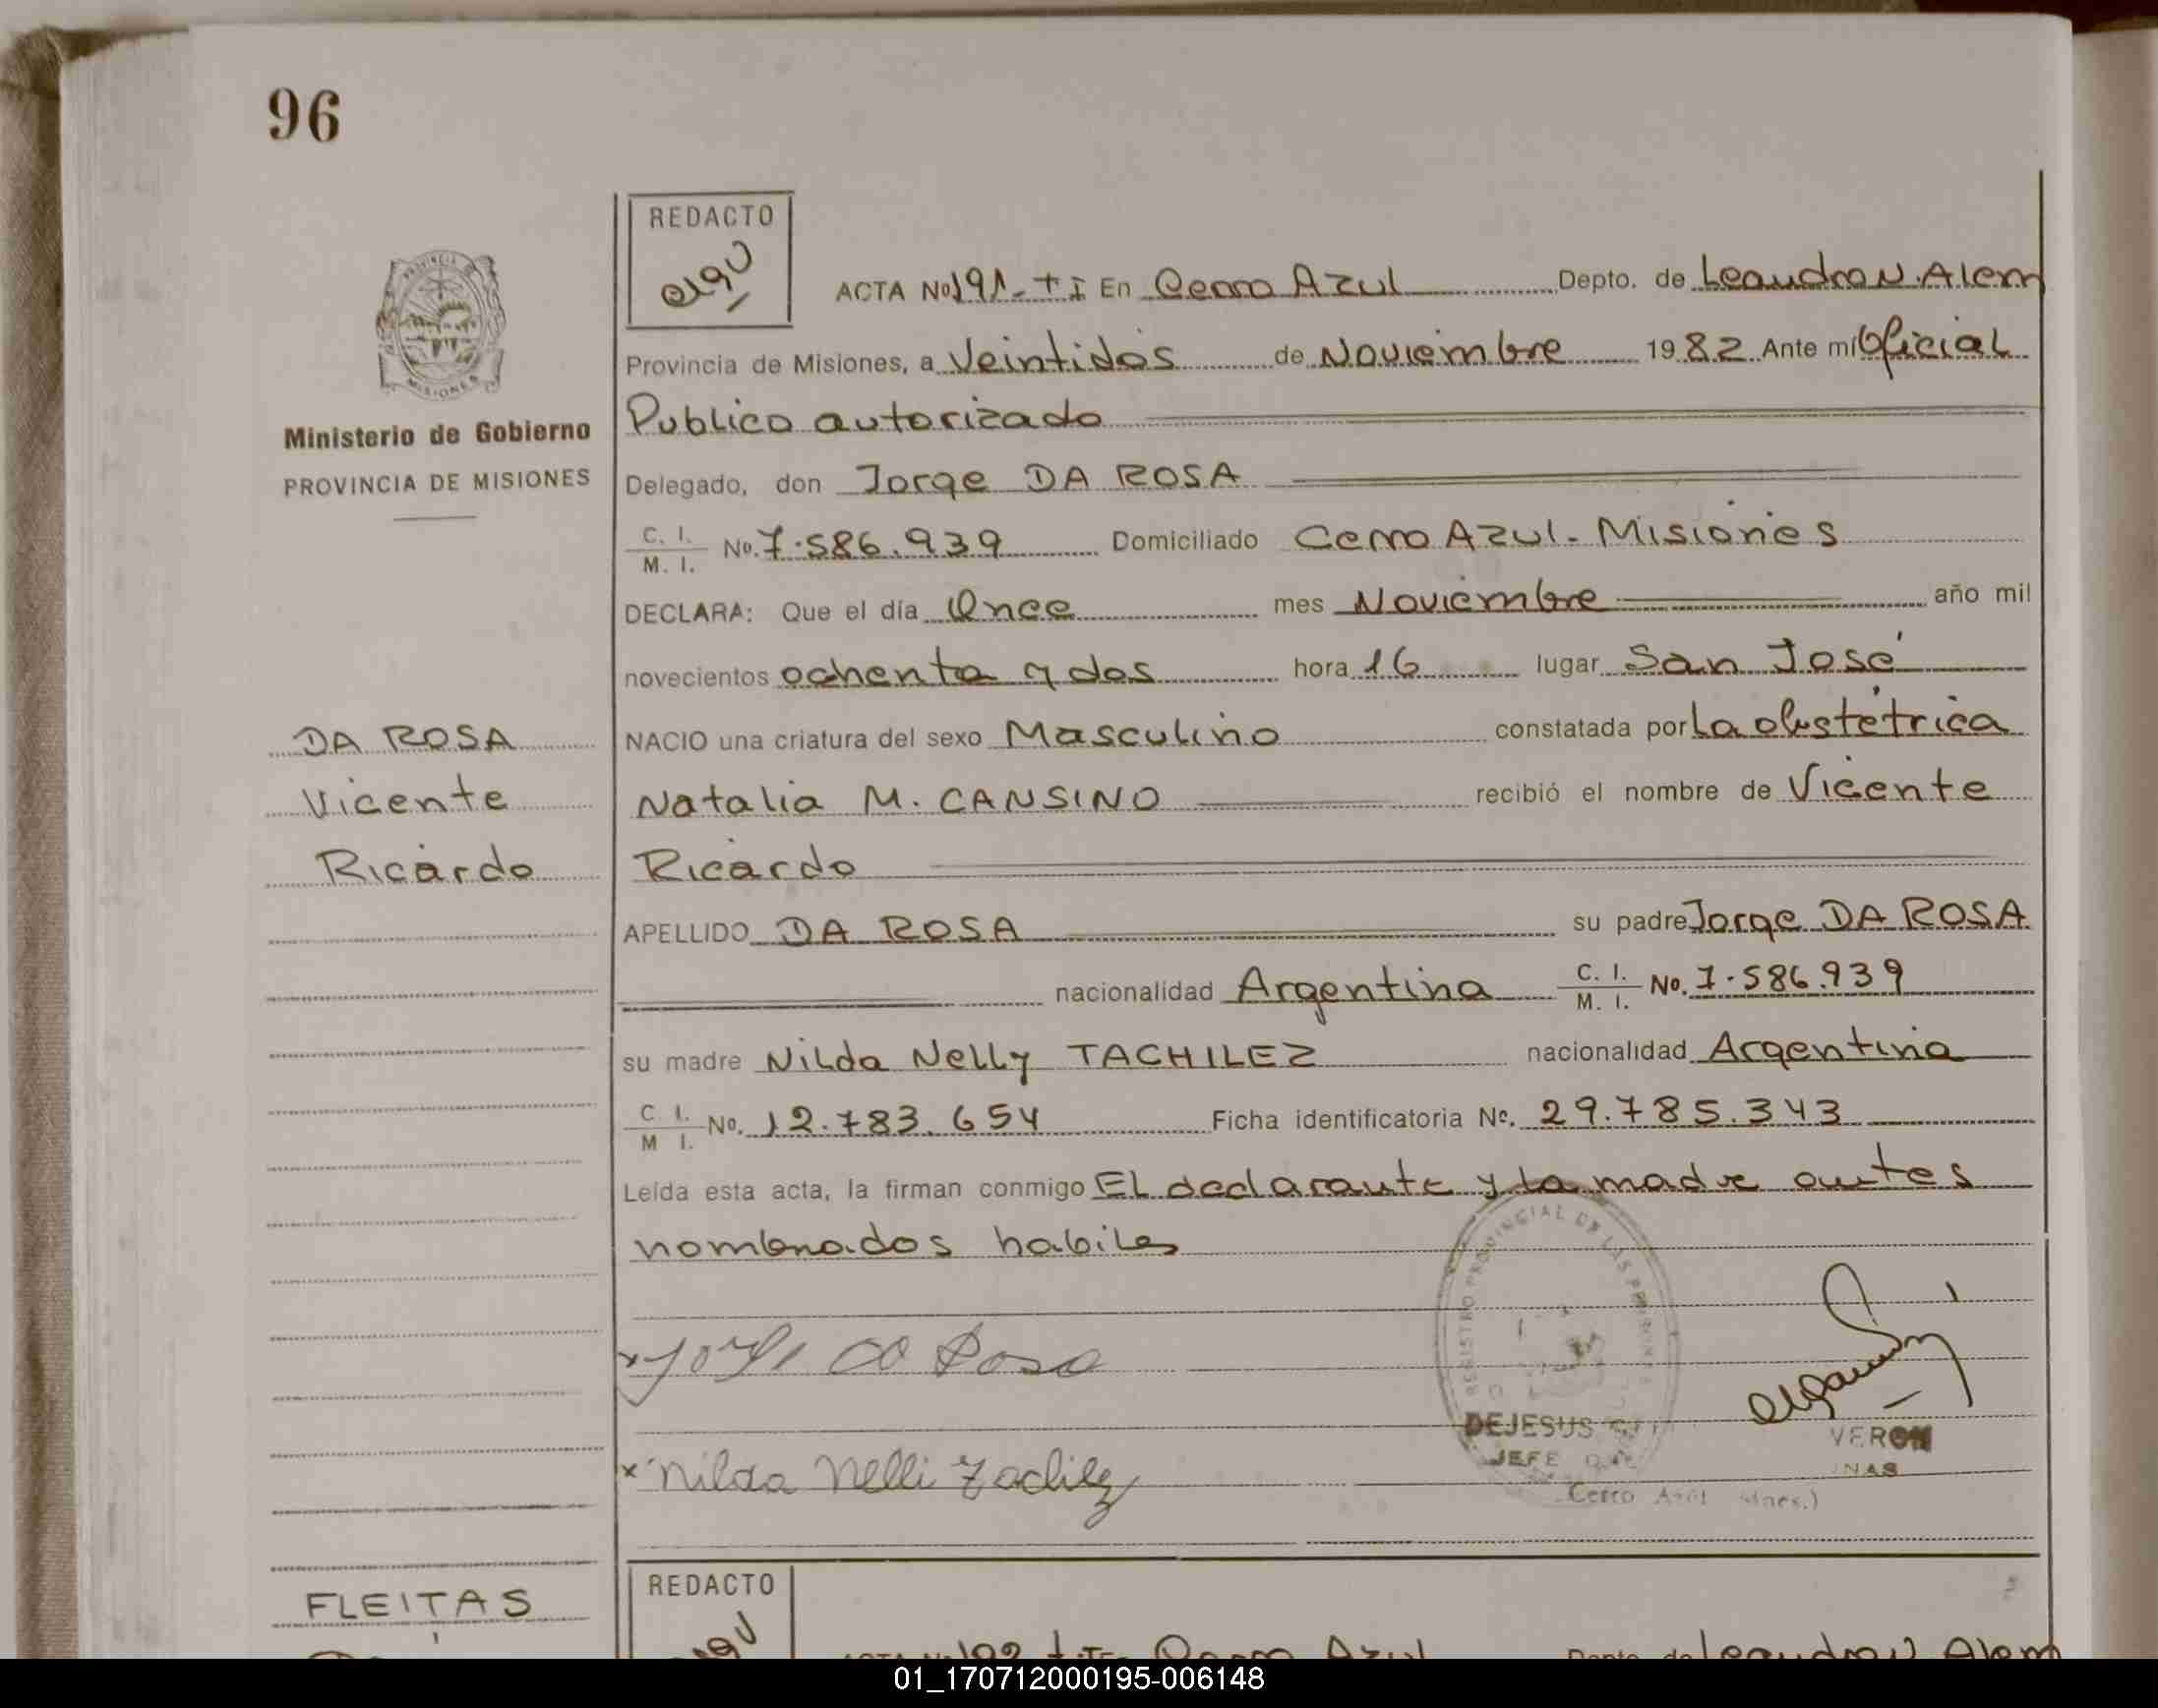 96
REDACTO
ACTA No 191 - T I En Cerro Azul Depto. de Leandro N. Alem
Provincia de Misiones, a Veintidos de Noviembre 1982 Ante mí Oficial
Publico autorizado
Ministerio de Gobierno
PROVINCIA DE MISIONES
Delegado, don Jorge DA ROSA
C. I. M. I. No. 7.586.939 Domiciliado Cerro Azul - Misiones
DECLARA: Que el día Once mes Noviembre año mil
novecientos ochenta y dos hora 16 lugar San José
DA ROSA
NACIO una criatura del sexo Masculino constatada por La obstétrica
Vicente
Natalia M. CANSINO recibió el nombre de Vicente
Ricardo
Ricardo
APELLIDO DA ROSA su padre Jorge DA ROSA
nacionalidad Argentina C. I. M. I. No. 7.586.939
su madre Nilda Nelly TACHILEZ nacionalidad Argentina
C. I. M. I. No. 12.783.654 Ficha identificatoria No. 29.785.343
Leída esta acta, la firman conmigo El declarante y la madre antes
nombrados habiles
REGISTRO PROVINCIAL DE LAS PERSONAS
x Jorge da Rosa
DEJESUS
VERON
JEFE
x Nilda Nelli Tachilez
Cerro Azul
REDACTO
FLEITAS
ACTA No 192 T I En Cerro Azul Depto. de Leandro N Alem
01_170712000195-006148